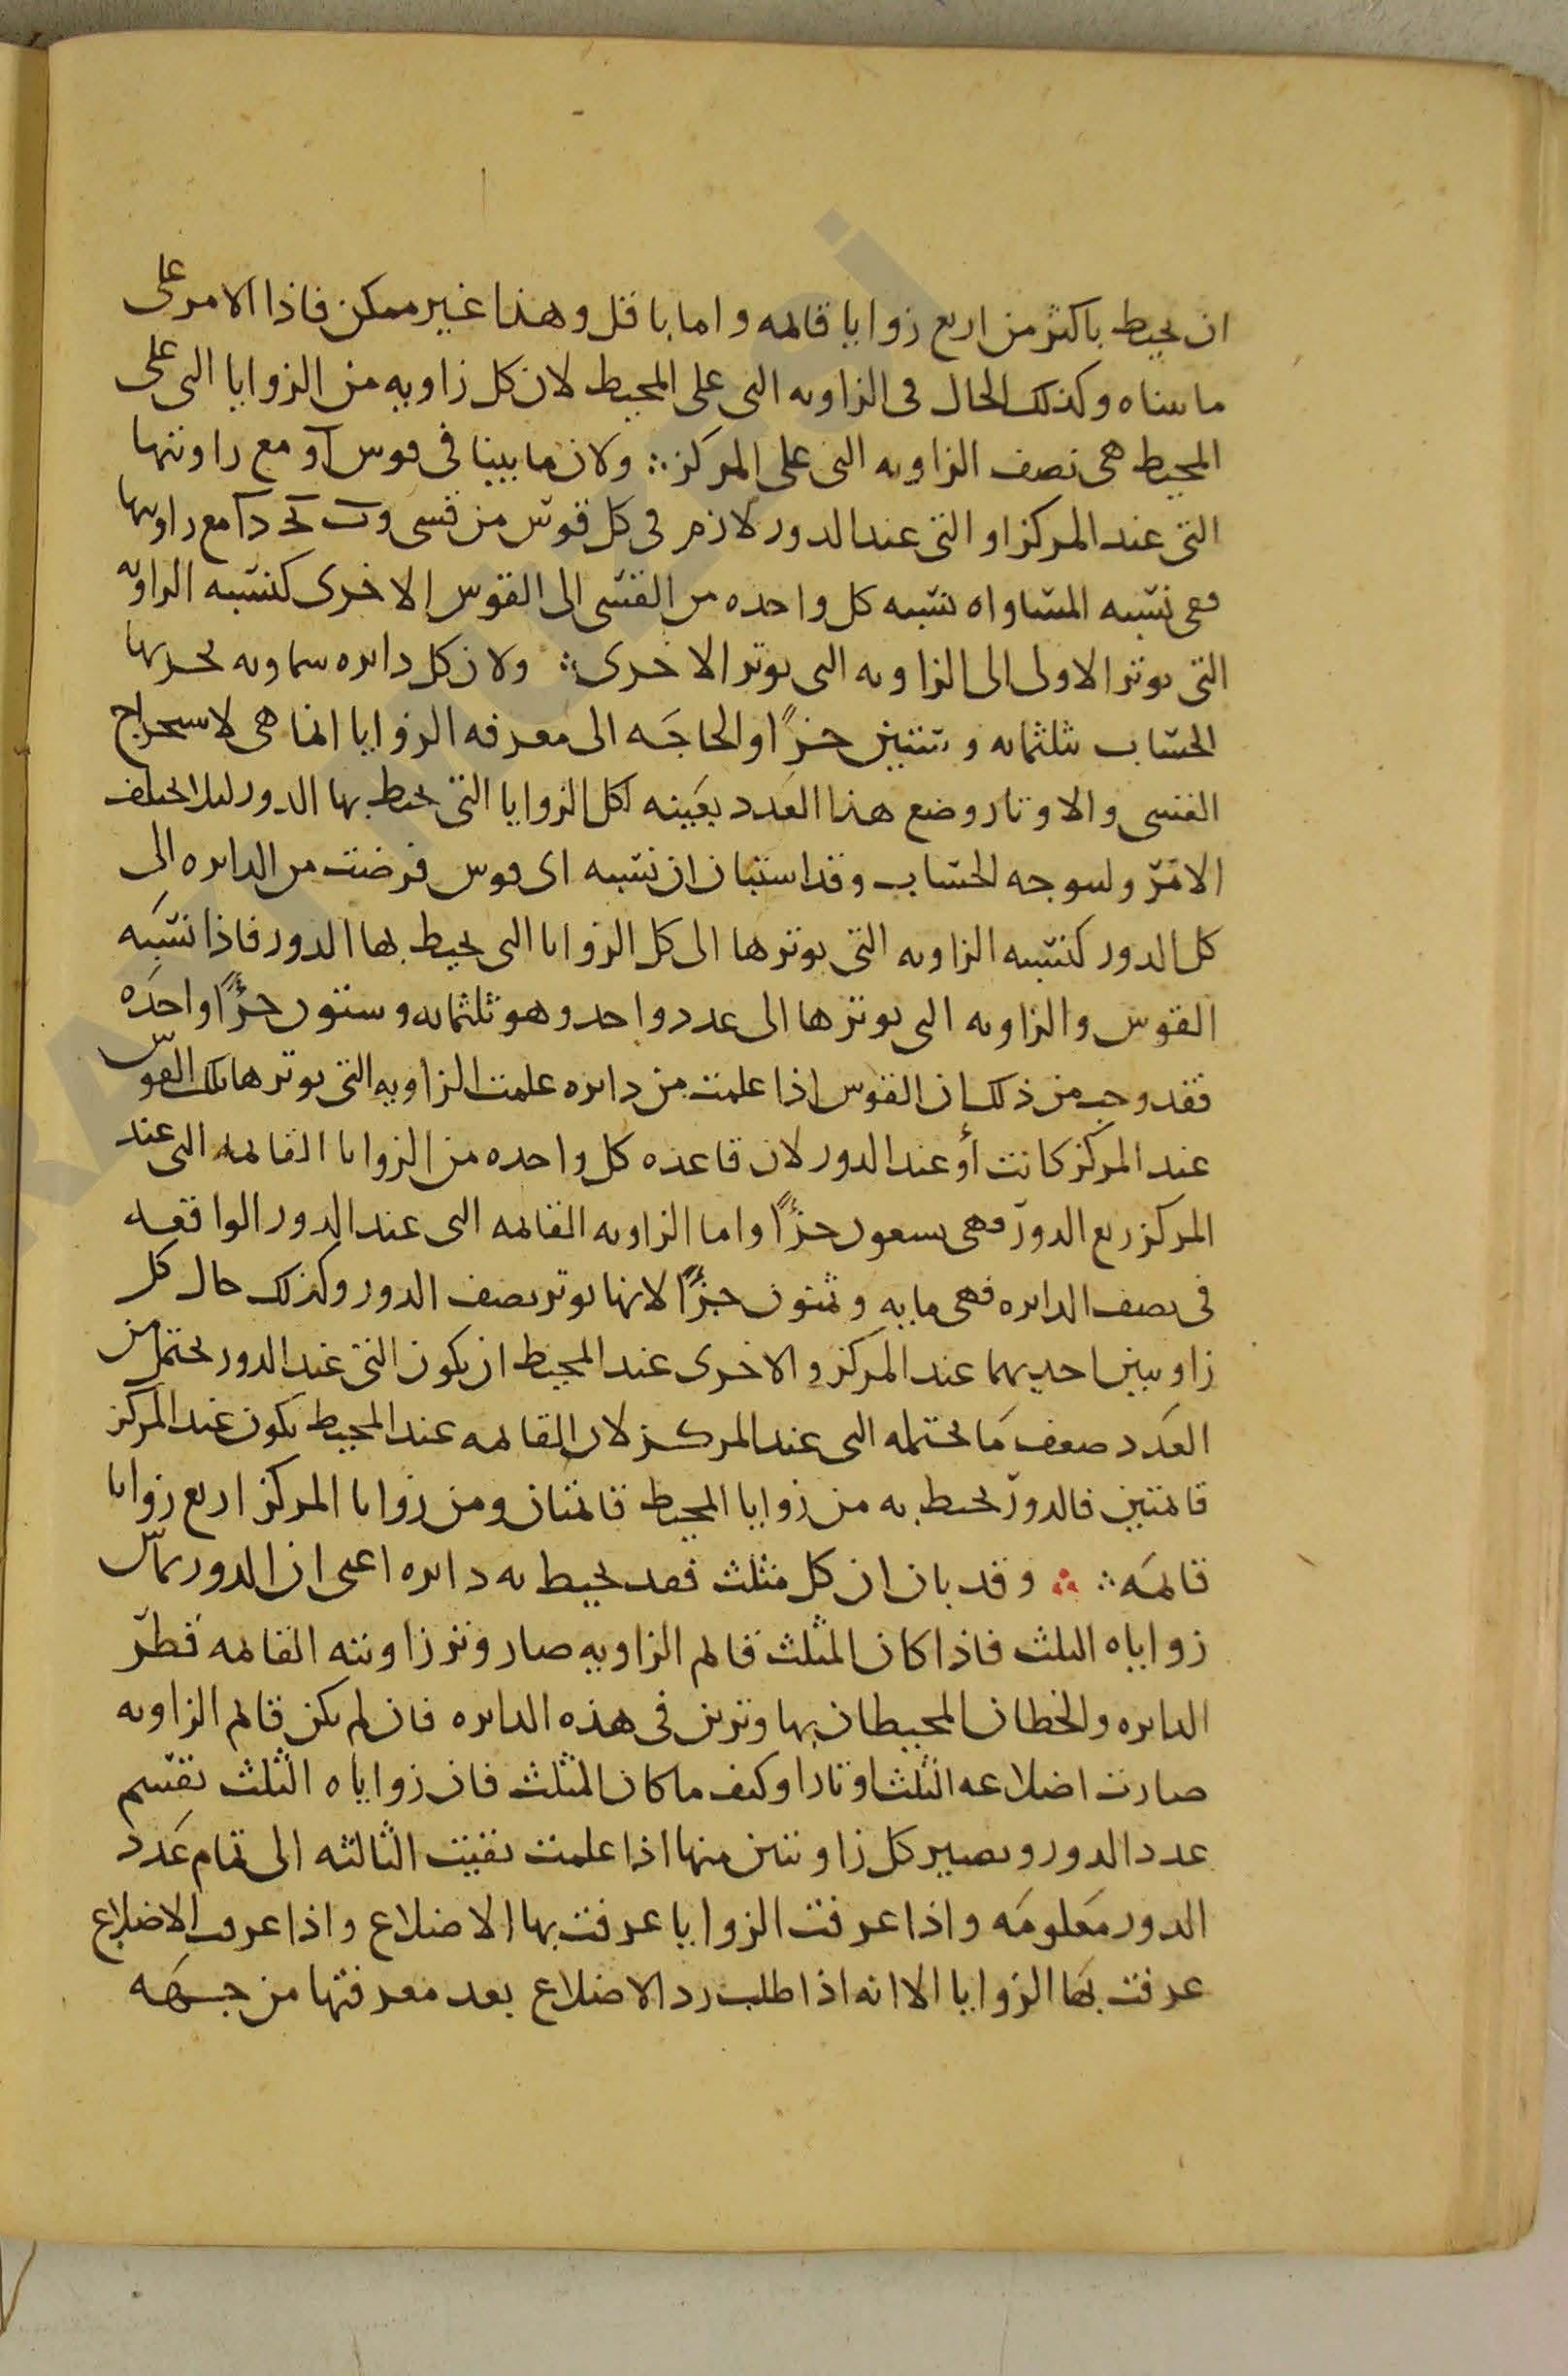 ان يحيط باكثر من اربع زوايا قائمه واما باقل وهذا غير ممكن فاذا الامر على
ما بيناه وكذلك الحال فى الزاويه التى على المحيط لان كل زاويه من الزوايا التى على
المحيط هى نصف الزاويه التى على المركز ولان ما بينا فى قوس آو مع زاويتها
التى عند المركز او التى عند الدور لازم فى كل قوس من قسى مع زاويتها
فهى نسبه المساواه نسبه كل واحده من القسى الى القوس الاخرى كنسبه الزاويه
التى يوتر الاولى الى الزاويه التى يوتر الاخرى ولان كل دايره سماويه
الحساب بثلثمايه وستين جزءًا والحاجه الى معرفه الزوايا انما هى لاستخراج
القسى والاوتار وضع هذا العدد بعينه لكل الزوايا التى يحيط بها الدور ليلا يختلف
الامر وجه الحساب وقد استبان ان نسبه اى قوس فرضت من الدايره الى
كل الدور كنسبه الزاويه التى يوترها الى كل الزوايا التى يحيط بها الدور فاذا نسبه
القوس والزاويه التى يوترها الى عدد واحد وهو ثلثمايه وستون جزءًا واحده
فقد وجب من ذلك ان القوس اذا علمت من دايره علمت الزاويه التى يوترها تلك القوس
عند المركز كانت أو عند الدور لان قاعده كل واحده من الزوايا القائمه التى عند
المركز ربع الدور فهى تسعون جزءًا واما الزاويه القائمه التى عند الدور الواقعه
فى نصف الدايره فهى مايه وثمنون جزءًا لانها يوتر نصف الدور وكذلك حال كل
زاويتين احديهما عند المركز والاخرى عند المحيط ان يكون التى عند الدور يحتمل من
العدد ضعف ما يحتمله التى عند المركز لان القائمه عند المحيط يكون عند المركز
قائمتين فالدور يحيط به من زوايا المحيط قائمتان ومن زوايا المركز اربع زوايا
قائمه وقد بان ان كل مثلث فقد يحيط به دايره اعنى ان الدور يماس
زواياه الثلث فاذا كان المثلث قائم الزاويه صار وتر زاويته القائمه قطر
الدايره والخطان المحيطان بها وترين فى هذه الدايره فان لم يكن قائم الزاويه
صارت اضلاعه الثلث اوتارا وكيف ما كان المثلث فان زواياه الثلث تقسم
عدد الدور ويصير كل زاويتين منها اذا علمت بقيت الثالثه الى تمام عدد
الدور معلومه واذا عرفت الزوايا عرفت بها الاضلاع واذا عرفت الاضلاع
عرفت بها الزوايا الا انه اذا طلب رد الاضلاع بعد معرفتها من جهه